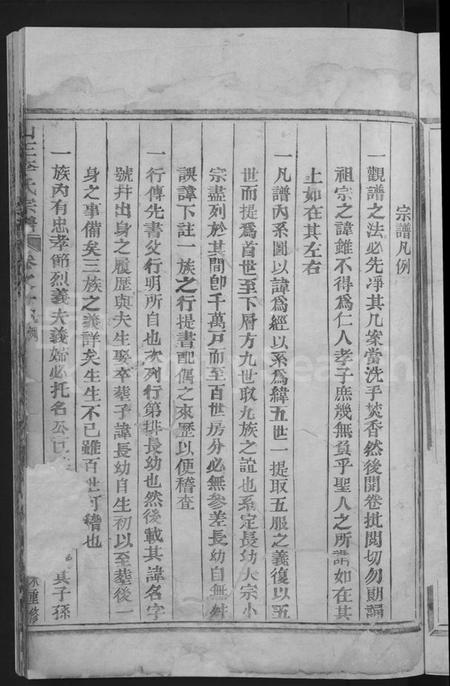 宗譜凡例
一觀譜之法必先凈其几案當洗乎焚香然後開卷批閱切勿朗誦
祖宗之諱雖不得為仁人孝子庶幾無負乎聖人之所謂如在其
上如在其左右
一凡譜內系圖以諱為經以系為緯五世一提取五服之義復以五
世而提為首世至下層方九世取九族之誼也系定長幼大宗小
宗盡列於其間卽千萬戶而至百世房分必無參差長幼自無紊
誤諱下註一族之行提書配偶之來歷以便稽查
一行傳先書父行明所自也次列行第排長幼也然後載其諱名字
號并出身之履歷與夫生娶卒葬子諱長幼自生初以至葬後一
身之事備矣三族之義詳矣生生不已雖百世可稽也
一族內有忠孝節烈義夫義婦必托名公巨
其子孫
氏宗譜
重修